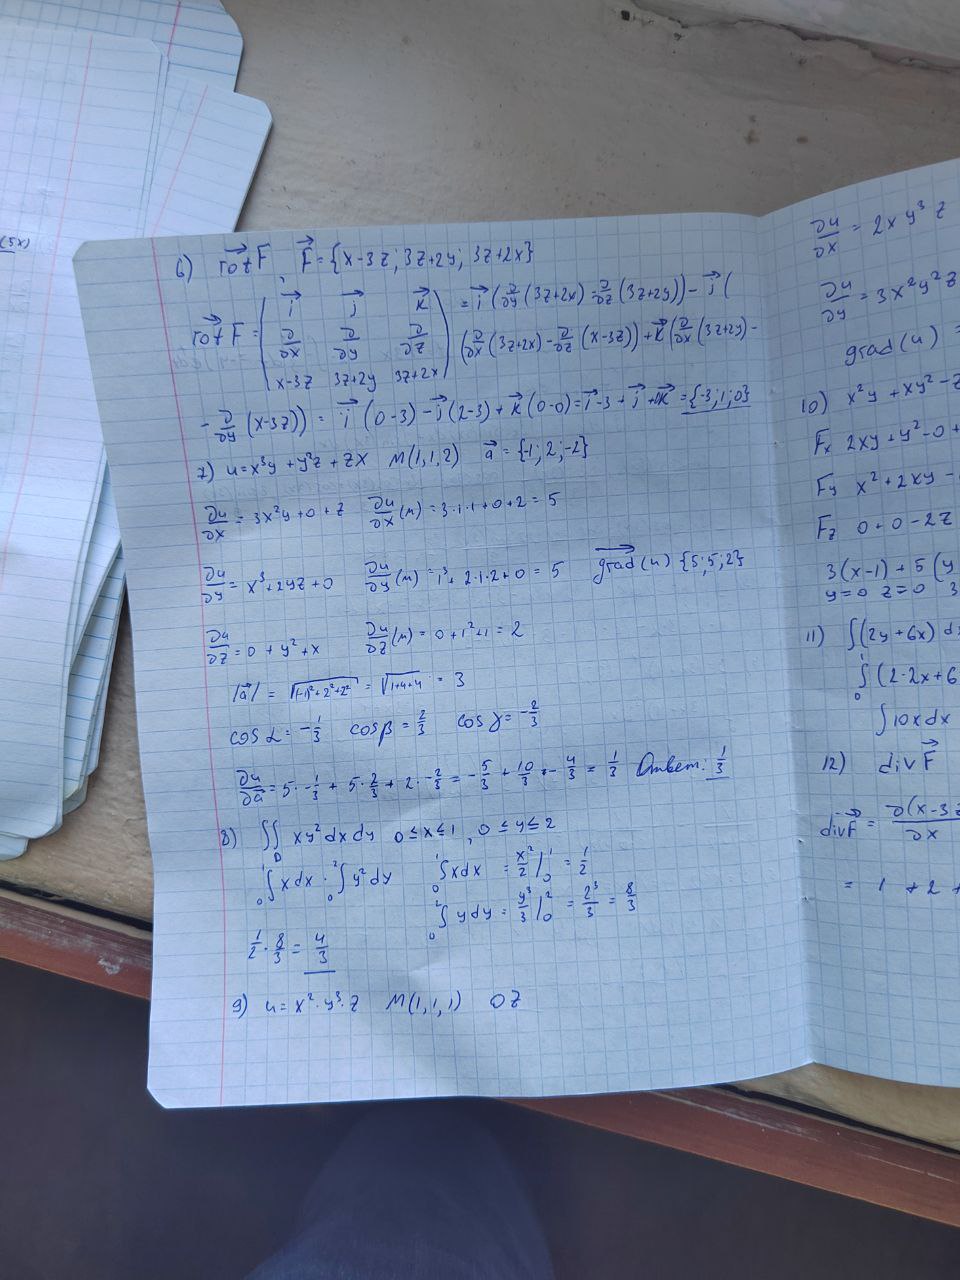 (5x)
6) rot F, F = {x-3z; 3z+2y; 3z+2x}
rot F = | i j k | = i (∂/∂y (3z+2x) - ∂/∂z (3z+2y)) - j (
| ∂/∂x ∂/∂y ∂/∂z | (∂/∂x (3z+2x) - ∂/∂z (x-3z)) + k (∂/∂x (3z+2y) -
| x-3z 3z+2y 3z+2x |
- ∂/∂y (x-3z)) = i (0-3) - j (2-3) + k (0-0) = i·-3 + j + 0k = {-3; 1; 0}
7) u = x³y + y²z + zx M(1,1,2) a = {-1; 2; -2}
∂u/∂x = 3x²y + 0 + z ∂u/∂x (м) = 3·1·1 + 0 + 2 = 5
∂u/∂y = x³ + 2yz + 0 ∂u/∂y (м) = 1³ + 2·1·2 + 0 = 5 grad(u) {5; 5; 2}
∂u/∂z = 0 + y² + x ∂u/∂z (м) = 0 + 1² + 1 = 2
|a| = √((-1)² + 2² + 2²) = √(1+4+4) = 3
cos α = -1/3 cos β = 2/3 cos γ = -2/3
∂u/∂a = 5·-1/3 + 5·2/3 + 2·-2/3 = -5/3 + 10/3 + -4/3 = 1/3 Ответ: 1/3
8) ∬_D xy² dx dy 0 ≤ x ≤ 1, 0 ≤ y ≤ 2
₀∫¹ x dx · ₀∫² y² dy ₀∫¹ x dx = x²/2 |₀¹ = 1/2
₀∫² y dy = y³/3 |₀² = 2³/3 = 8/3
1/2 · 8/3 = 4/3
9) u = x²·y³·z M(1,1,1) OZ
∂u/∂x = 2x y³ z
∂u/∂y = 3x²y²z
grad(u) =
10) x²y + xy² - z
Fx 2xy + y² - 0 +
Fy x² + 2xy -
Fz 0 + 0 - 2z
3(x-1) + 5(y
y=0 z=0 3
11) ∫(2y+6x) dx
₀∫¹ (2·2x + 6
∫10x dx
12) div F
div F = ∂(x-3z/∂x
= 1 + 2 +